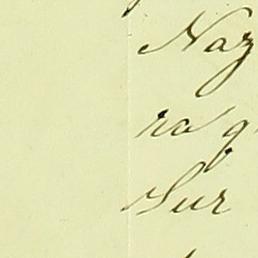 Naz
ra q
Sur